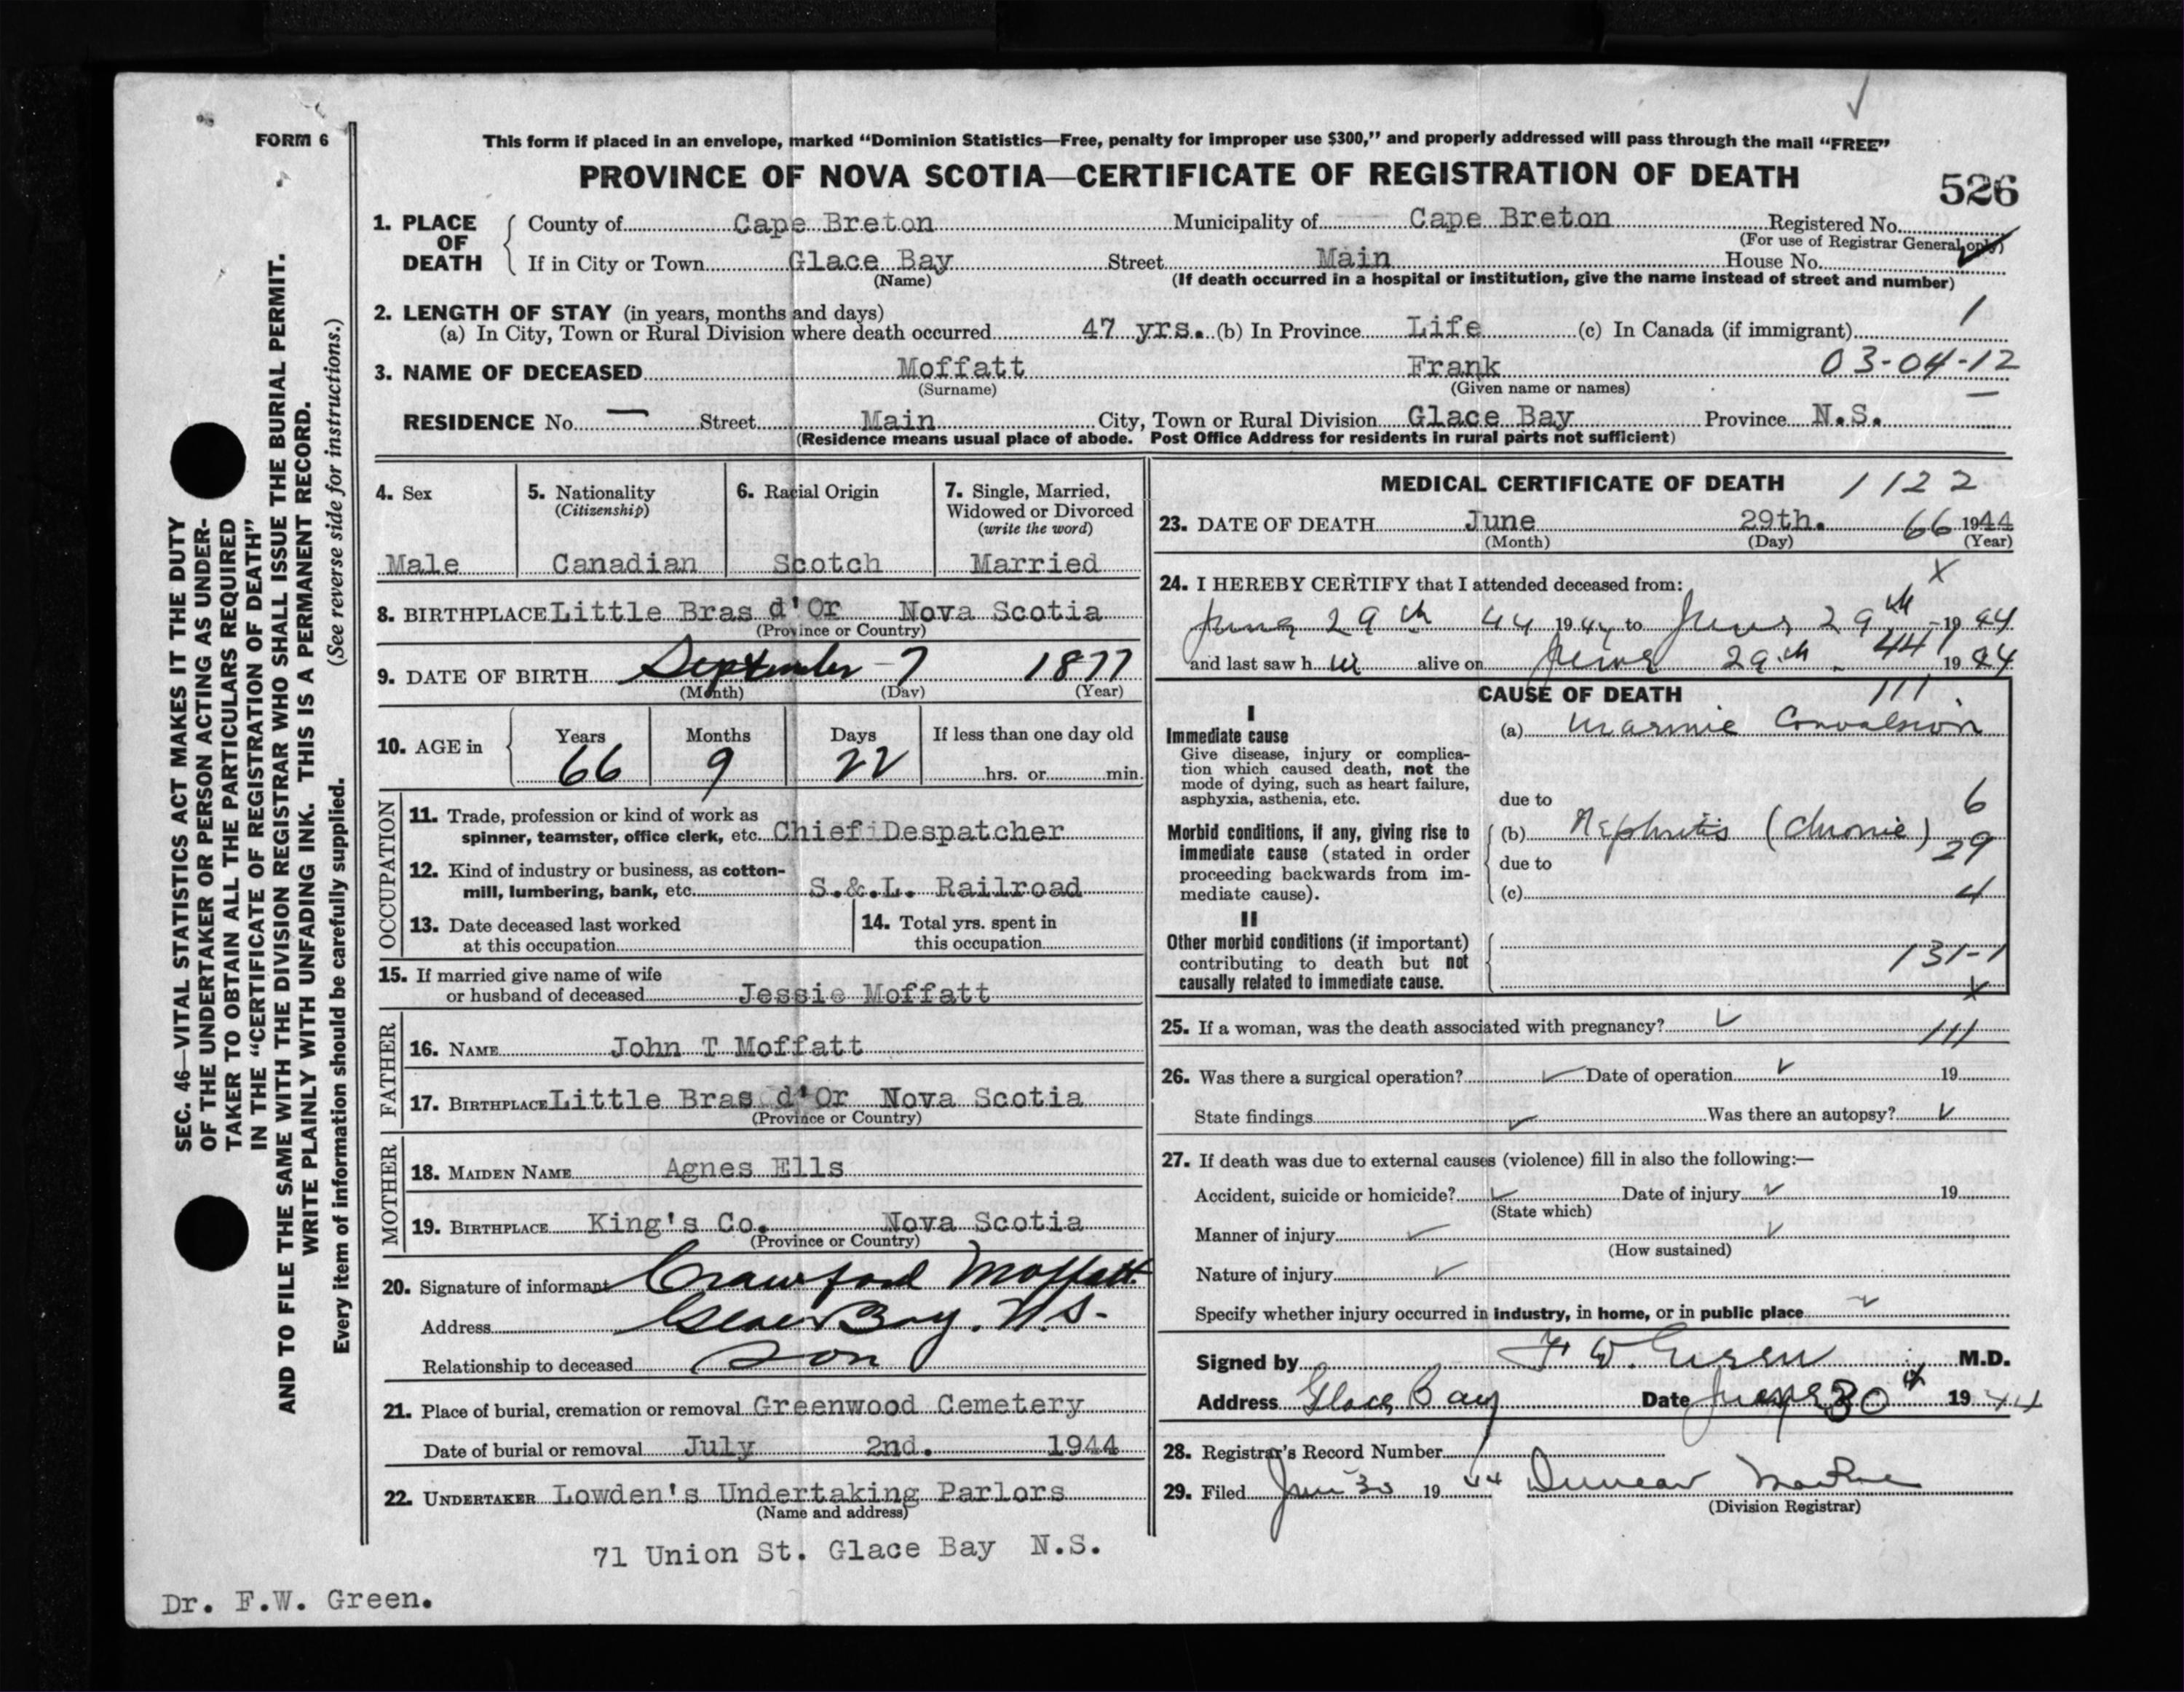 FORM 6
This form if placed in an envelope, marked "Dominion Statistics—Free, penalty for improper use $300," and properly addressed will pass through the mail "FREE"
PROVINCE OF NOVA SCOTIA—CERTIFICATE OF REGISTRATION OF DEATH
526
SEC. 46—VITAL STATISTICS ACT MAKES IT THE DUTY
OF THE UNDERTAKER OR PERSON ACTING AS UNDER-
TAKER TO OBTAIN ALL THE PARTICULARS REQUIRED
IN THE "CERTIFICATE OF REGISTRATION OF DEATH"
AND TO FILE THE SAME WITH THE DIVISION REGISTRAR WHO SHALL ISSUE THE BURIAL PERMIT.
WRITE PLAINLY WITH UNFADING INK. THIS IS A PERMANENT RECORD.
Every item of information should be carefully supplied. (See reverse side for instructions.)
1. PLACE OF DEATH
County of Cape Breton Municipality of Cape Breton Registered No.
(For use of Registrar General only)
If in City or Town Glace Bay Street Main House No.
(Name) (If death occurred in a hospital or institution, give the name instead of street and number)
2. LENGTH OF STAY (in years, months and days)
(a) In City, Town or Rural Division where death occurred 47 yrs. (b) In Province Life (c) In Canada (if immigrant) 1
3. NAME OF DECEASED Moffatt Frank 03-04-12
(Surname) (Given name or names)
RESIDENCE No. — Street Main City, Town or Rural Division Glace Bay Province N.S.
(Residence means usual place of abode. Post Office Address for residents in rural parts not sufficient)
4. Sex
Male
5. Nationality
(Citizenship)
Canadian
6. Racial Origin
Scotch
7. Single, Married,
Widowed or Divorced
(write the word)
Married
8. BIRTHPLACE Little Bras d'Or Nova Scotia
(Province or Country)
9. DATE OF BIRTH September 7 1877
(Month) (Day) (Year)
10. AGE in
Years Months Days If less than one day old
66 9 22 hrs. or min.
OCCUPATION
11. Trade, profession or kind of work as
spinner, teamster, office clerk, etc. Chief Despatcher
12. Kind of industry or business, as cotton-
mill, lumbering, bank, etc. S.&.L. Railroad
13. Date deceased last worked
at this occupation
14. Total yrs. spent in
this occupation
15. If married give name of wife
or husband of deceased Jessie Moffatt
FATHER
16. NAME John T Moffatt
17. BIRTHPLACE Little Bras d'Or Nova Scotia
(Province or Country)
MOTHER
18. MAIDEN NAME Agnes Ells
19. BIRTHPLACE King's Co. Nova Scotia
(Province or Country)
20. Signature of informant Crawford Moffatt
Address Glace Bay. N.S.
Relationship to deceased Son
21. Place of burial, cremation or removal Greenwood Cemetery
Date of burial or removal July 2nd. 1944
22. UNDERTAKER Lowden's Undertaking Parlors
(Name and address)
71 Union St. Glace Bay N.S.
Dr. F.W. Green.
MEDICAL CERTIFICATE OF DEATH 1122
23. DATE OF DEATH June 29th. 66 1944
(Month) (Day) (Year)
24. I HEREBY CERTIFY that I attended deceased from:
June 29th 44 1944 to June 29th 1944
and last saw h alive on June 29th 44 1944
CAUSE OF DEATH 111
I
Immediate cause
Give disease, injury or complica-
tion which caused death, not the
mode of dying, such as heart failure,
asphyxia, asthenia, etc.
(a) Convulsion
due to
Morbid conditions, if any, giving rise to
immediate cause (stated in order
proceeding backwards from im-
mediate cause).
6
(b) Nephritis (chronic) 29
due to
(c) 4
II
Other morbid conditions (if important)
contributing to death but not
causally related to immediate cause.
131-1
25. If a woman, was the death associated with pregnancy? 111
26. Was there a surgical operation? Date of operation 19
State findings Was there an autopsy?
27. If death was due to external causes (violence) fill in also the following:—
Accident, suicide or homicide? Date of injury 19
(State which)
Manner of injury
(How sustained)
Nature of injury
Specify whether injury occurred in industry, in home, or in public place
Signed by F W. Green M.D.
Address Glace Bay Date June 30th 1944
28. Registrar's Record Number
29. Filed June 30 1944 Duncan
(Division Registrar)